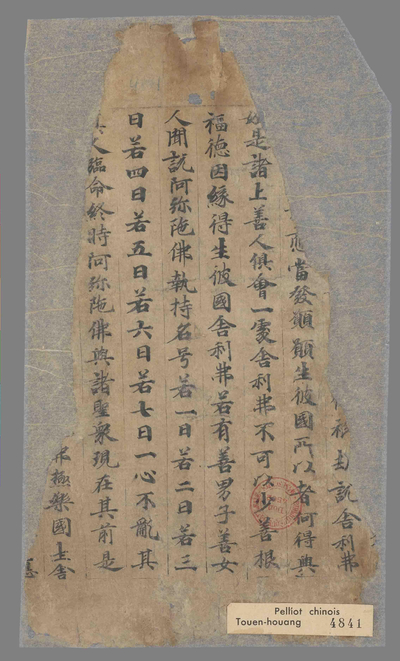 祇劫說舍利弗
應當發願願生彼國所以者何得與
如是諸上善人俱會一處舍利弗不可以少善根
福德因緣得生彼國舍利弗若有善男子善女
人聞說阿弥陁佛執持名号若一日若二日若三
日若四日若五日若六日若七日一心不亂其
人臨命終時阿弥陁佛與諸聖衆現在其前是
極樂國土舍
Pelliot chinois
Touen-houang 4841